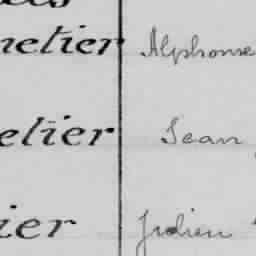 netier Alphonse
elier Jean
ier Julien